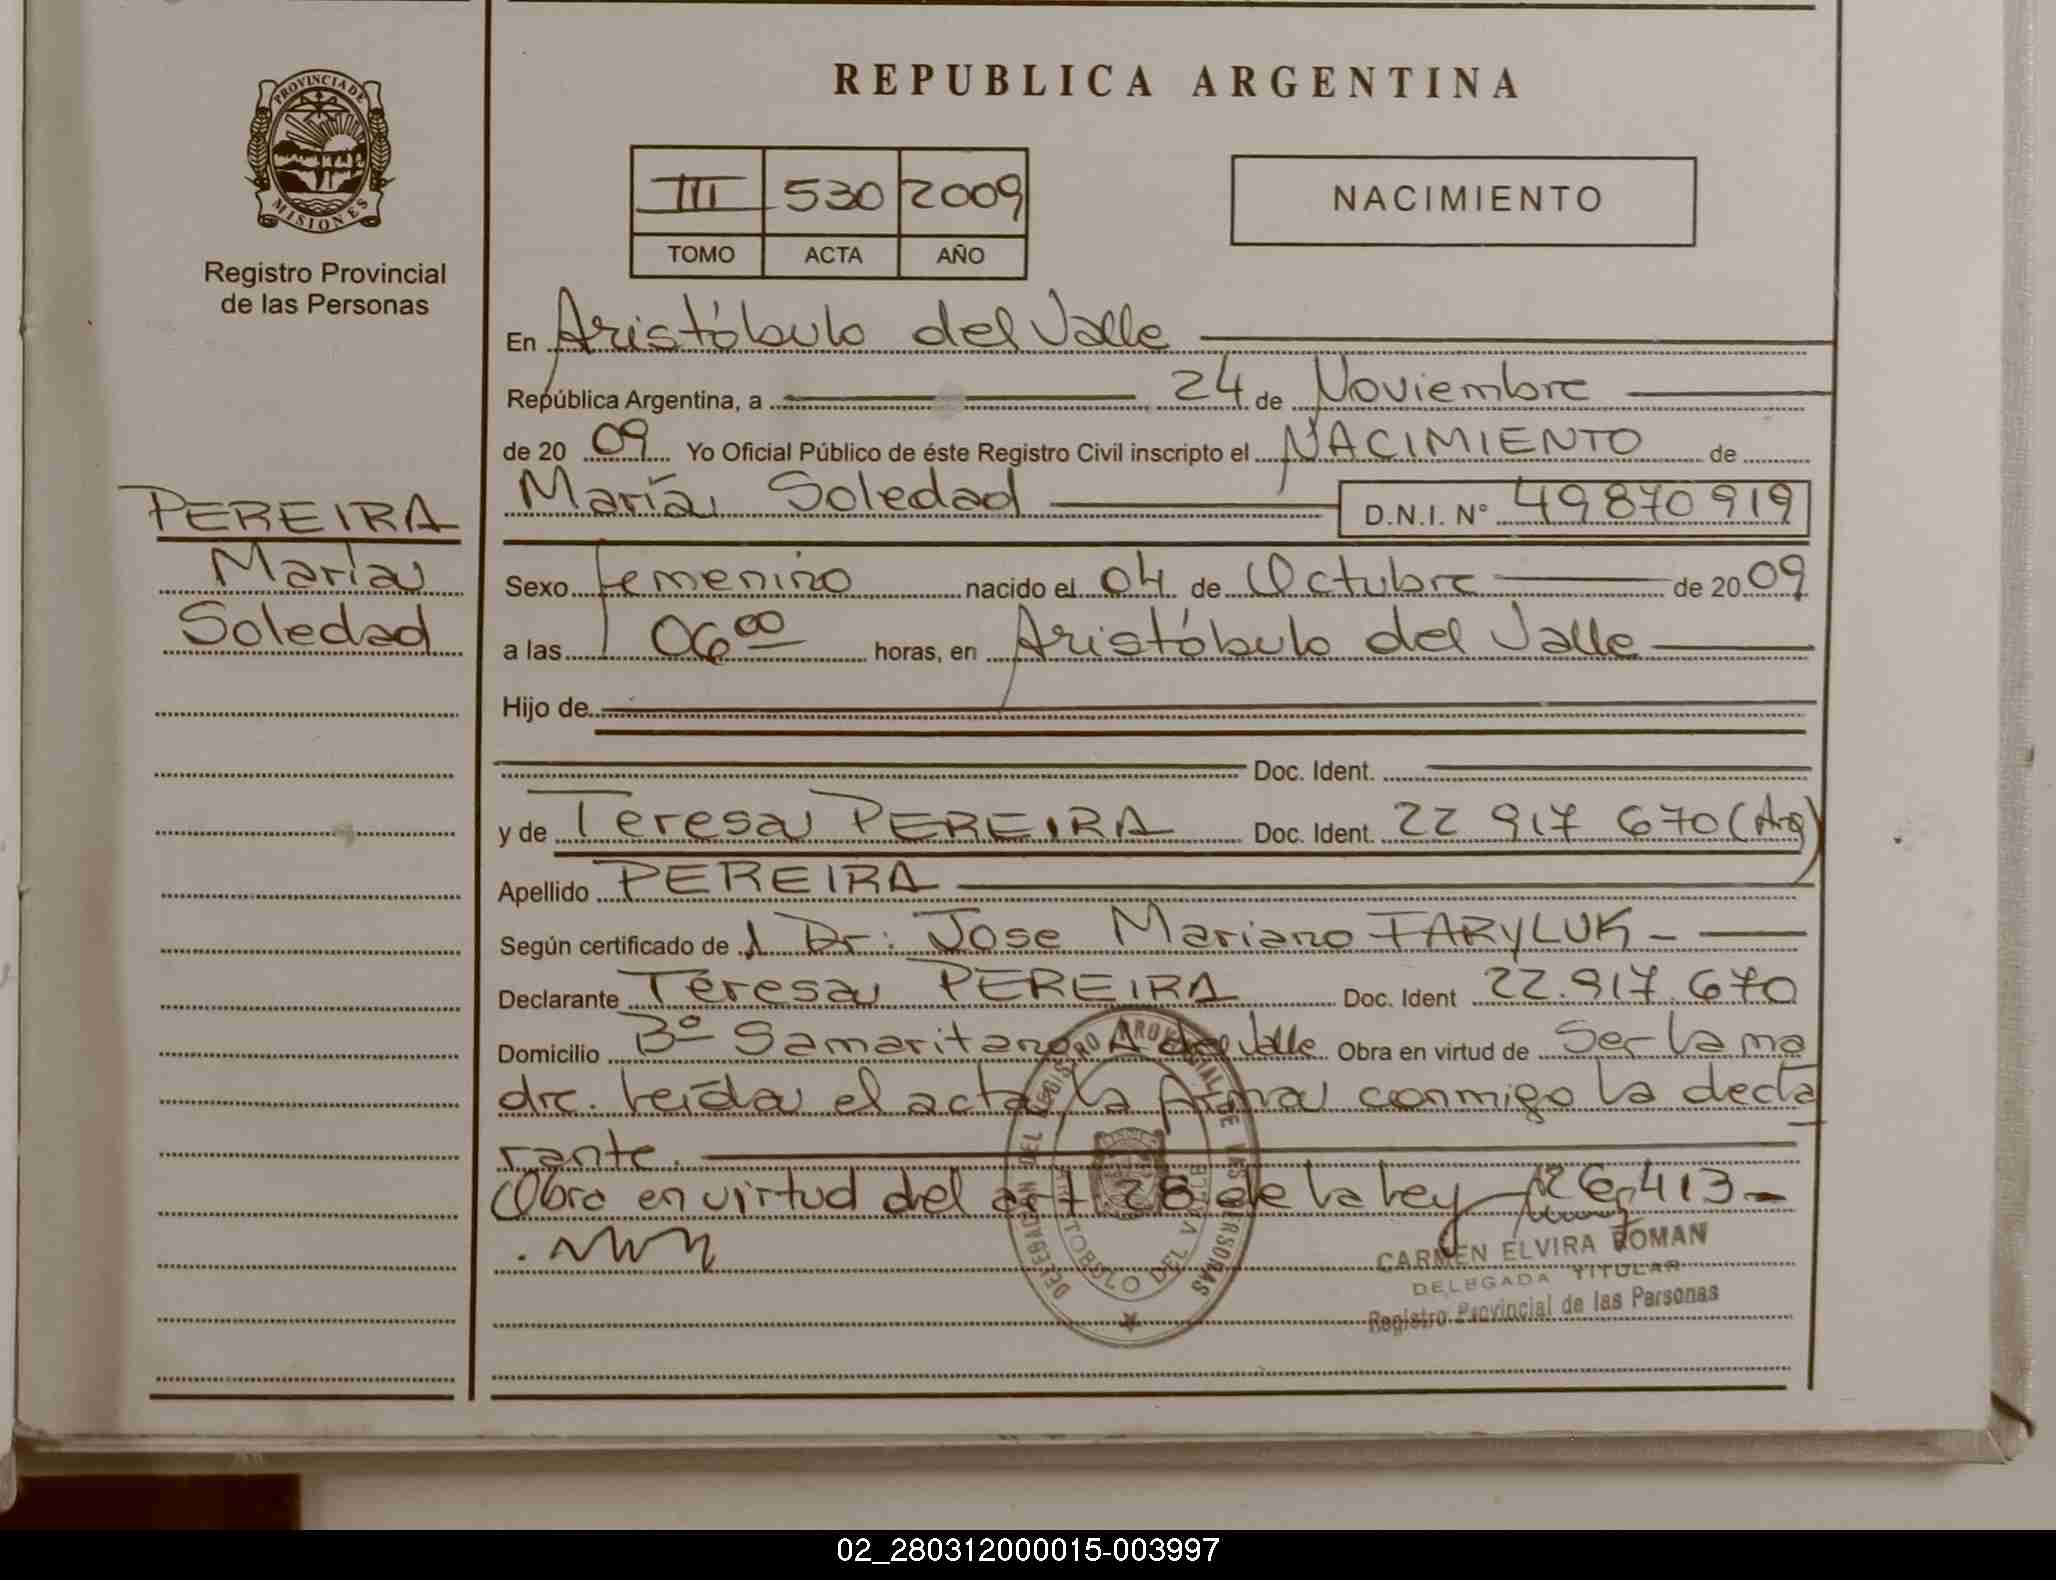 REPUBLICA ARGENTINA
PROVINCIA DE MISIONES
Registro Provincial
de las Personas
III 530 2009
TOMO ACTA AÑO
NACIMIENTO
En Aristóbulo del Valle
República Argentina, a 24 de Noviembre
de 20 09 Yo Oficial Público de éste Registro Civil inscripto el NACIMIENTO de
María Soledad D.N.I. N° 49870919
PEREIRA
María
Soledad
Sexo femenino nacido el 04 de Octubre de 20 09
a las 06 00 horas, en Aristóbulo del Valle
Hijo de
Doc. Ident.
y de Teresa PEREIRA Doc. Ident. 22 917 670 (Arg)
Apellido PEREIRA
Según certificado de Dr: Jose Mariano FARYLUK -
Declarante Teresa PEREIRA Doc. Ident 22.917.670
Domicilio B° Samaritano A del Valle Obra en virtud de Ser la ma
dre. leída el acta, la firma conmigo la decla
rante.
Obra en virtud del art 28 de la ley 26.413-
DELEGACION DEL REGISTRO PROVINCIAL DE LAS PERSONAS
ARISTOBULO DEL VALLE
CARMEN ELVIRA ROMAN
DELEGADA TITULAR
Registro Provincial de las Personas
02_280312000015-003997